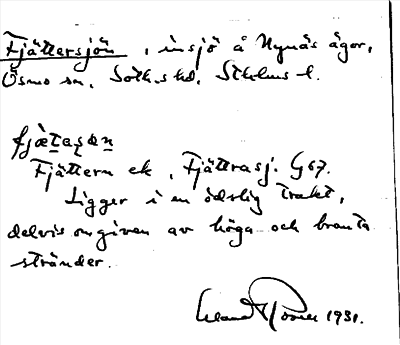 Fjättersjön, insjö å Nynäs ägor,
Ösmo sn, Soth. hd, Sthlms l.
Fjättern ek, Fjättrasj. G67.
Ligger i en ödslig trakt,
delvis omgiven av höga och branta
stränder.
1931.